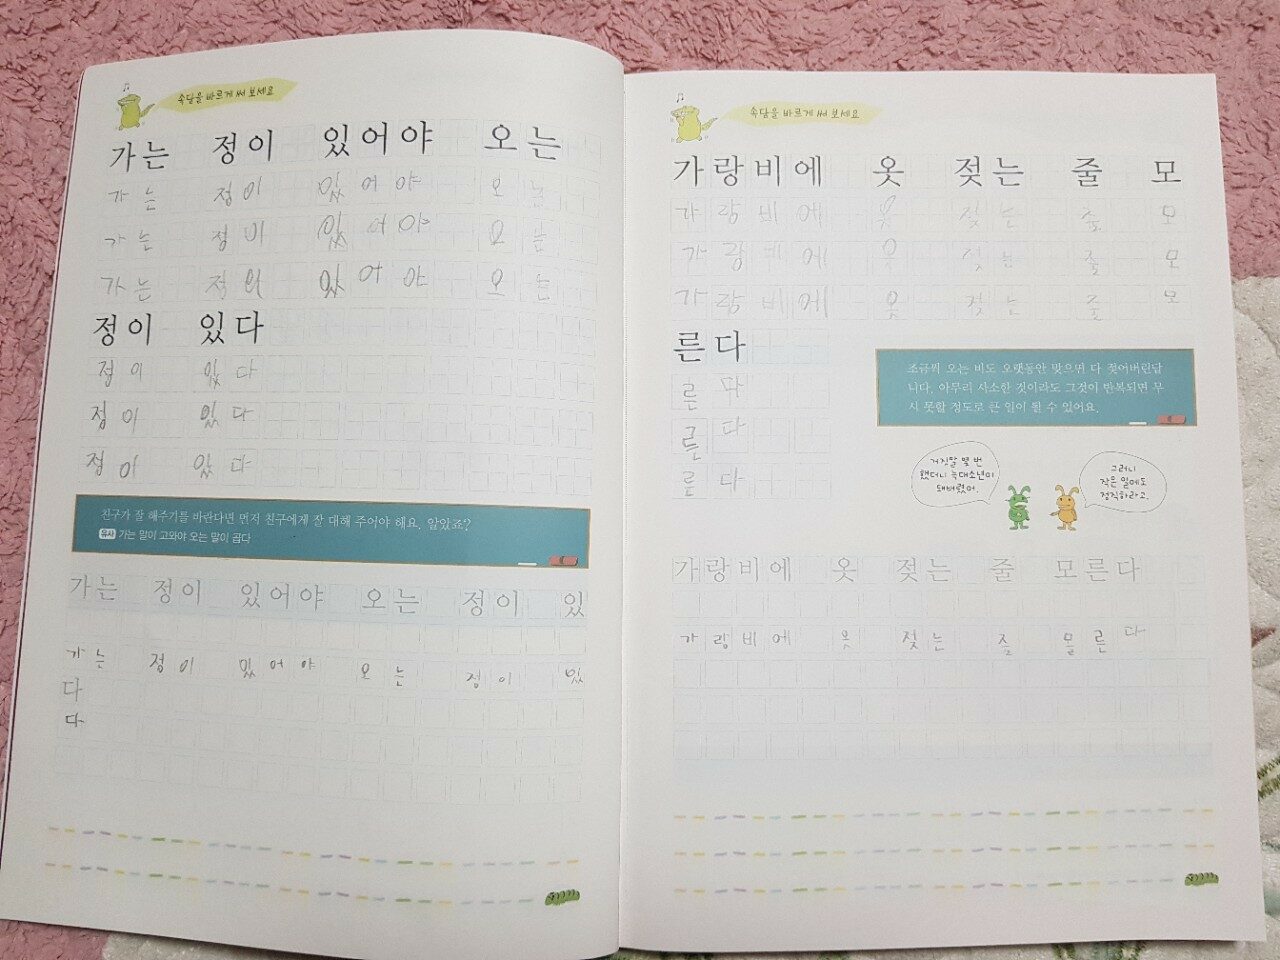 속담을 바르게 써 보세요
가는 정이 있어야 오는
가는 정이 있어야 오는
가는 정이 있어야 오는
가는 정이 있어야 오는
정이 있다
정이 있다
정이 있다
정이 있다
친구가 잘 해주기를 바란다면 먼저 친구에게 잘 대해 주어야 해요. 알았죠?
유사 가는 말이 고와야 오는 말이 곱다
가는 정이 있어야 오는 정이 있
가는 정이 있어야 오는 정이 있
다
다
속담을 바르게 써 보세요
가랑비에 옷 젖는 줄 모
가랑비에 옷 젖는 줄 모
가랑비에 옷 젖는 줄 모
가랑비에 옷 젖는 줄 모
른다
른다
른다
른다
조금씩 오는 비도 오랫동안 맞으면 다 젖어버린답
니다. 아무리 사소한 것이라도 그것이 반복되면 무
시 못할 정도로 큰 일이 될 수 있어요.
거짓말 몇 번
했더니 늑대소년이
돼버렸어.
그러니
작은 일에도
정직하라고.
가랑비에 옷 젖는 줄 모른다
가랑비에 옷 젖는 줄 몰른다